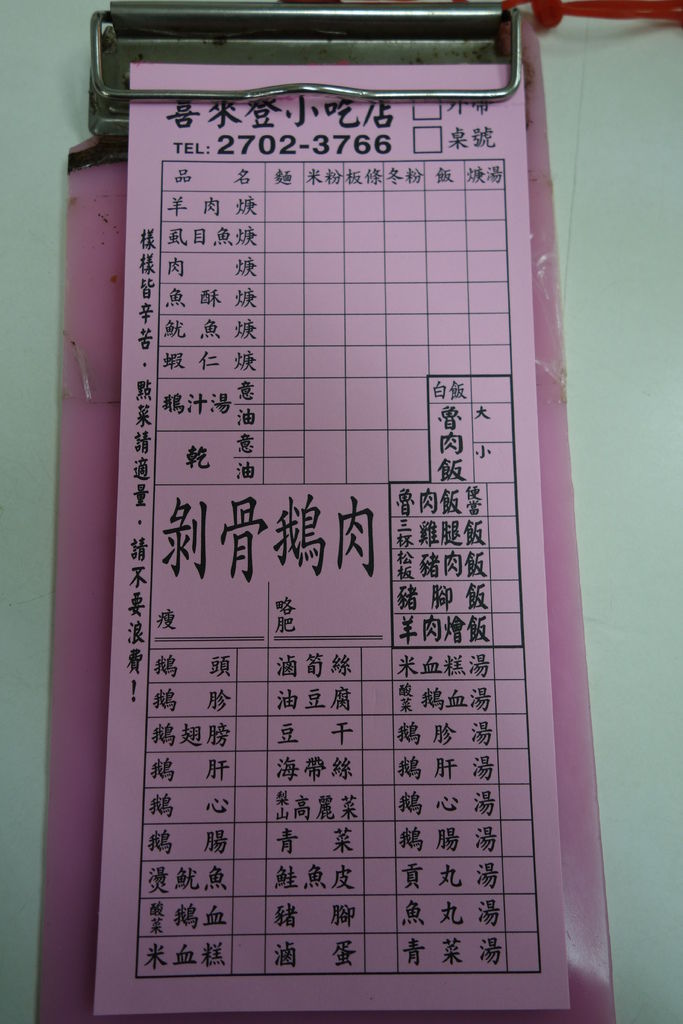 喜來登小吃店 □外帶
TEL: 2702-3766 □桌號
品名 麵 米粉 板條 冬粉 飯 焿湯
羊肉焿
虱目魚焿
肉焿
魚酥焿
魷魚焿
蝦仁焿
鵝汁湯 意 油
乾 意 油
白飯
魯肉飯 大 小
剝骨鵝肉
瘦 略肥
魯肉飯便當
三杯雞腿飯
松板豬肉飯
豬腳飯
羊肉燴飯
鵝頭 滷筍絲 米血糕湯
鵝胗 油豆腐 酸菜鵝血湯
鵝翅膀 豆干 鵝胗湯
鵝肝 海帶絲 鵝肝湯
鵝心 梨山高麗菜 鵝心湯
鵝腸 青菜 鵝腸湯
燙魷魚 鮭魚皮 貢丸湯
酸菜鵝血 豬腳 魚丸湯
米血糕 滷蛋 青菜湯
樣樣皆辛苦．點菜請適量．請不要浪費！